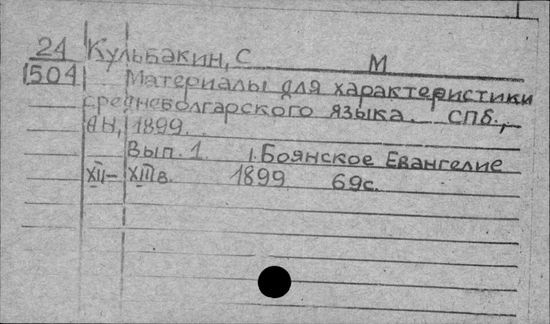 24 Кульбакин, С М
1504 Материалы для характеристики
среднеболгарского языка. СПб.,
АН, 1899.
Вып. 1 1. Боянское Евангелие
XII- XIIIв. 1899 69с.